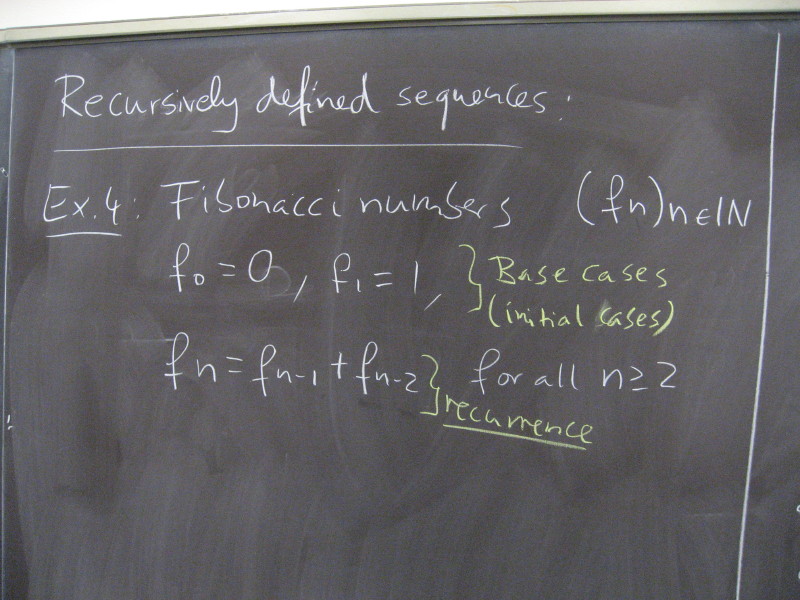 Recursively defined sequences:
Ex.4: Fibonacci numbers (fn)n∈ℕ
f₀ = 0, f₁ = 1, } Base cases
(initial cases)
fn = fn-1 + fn-2 } for all n ≥ 2
recurrence